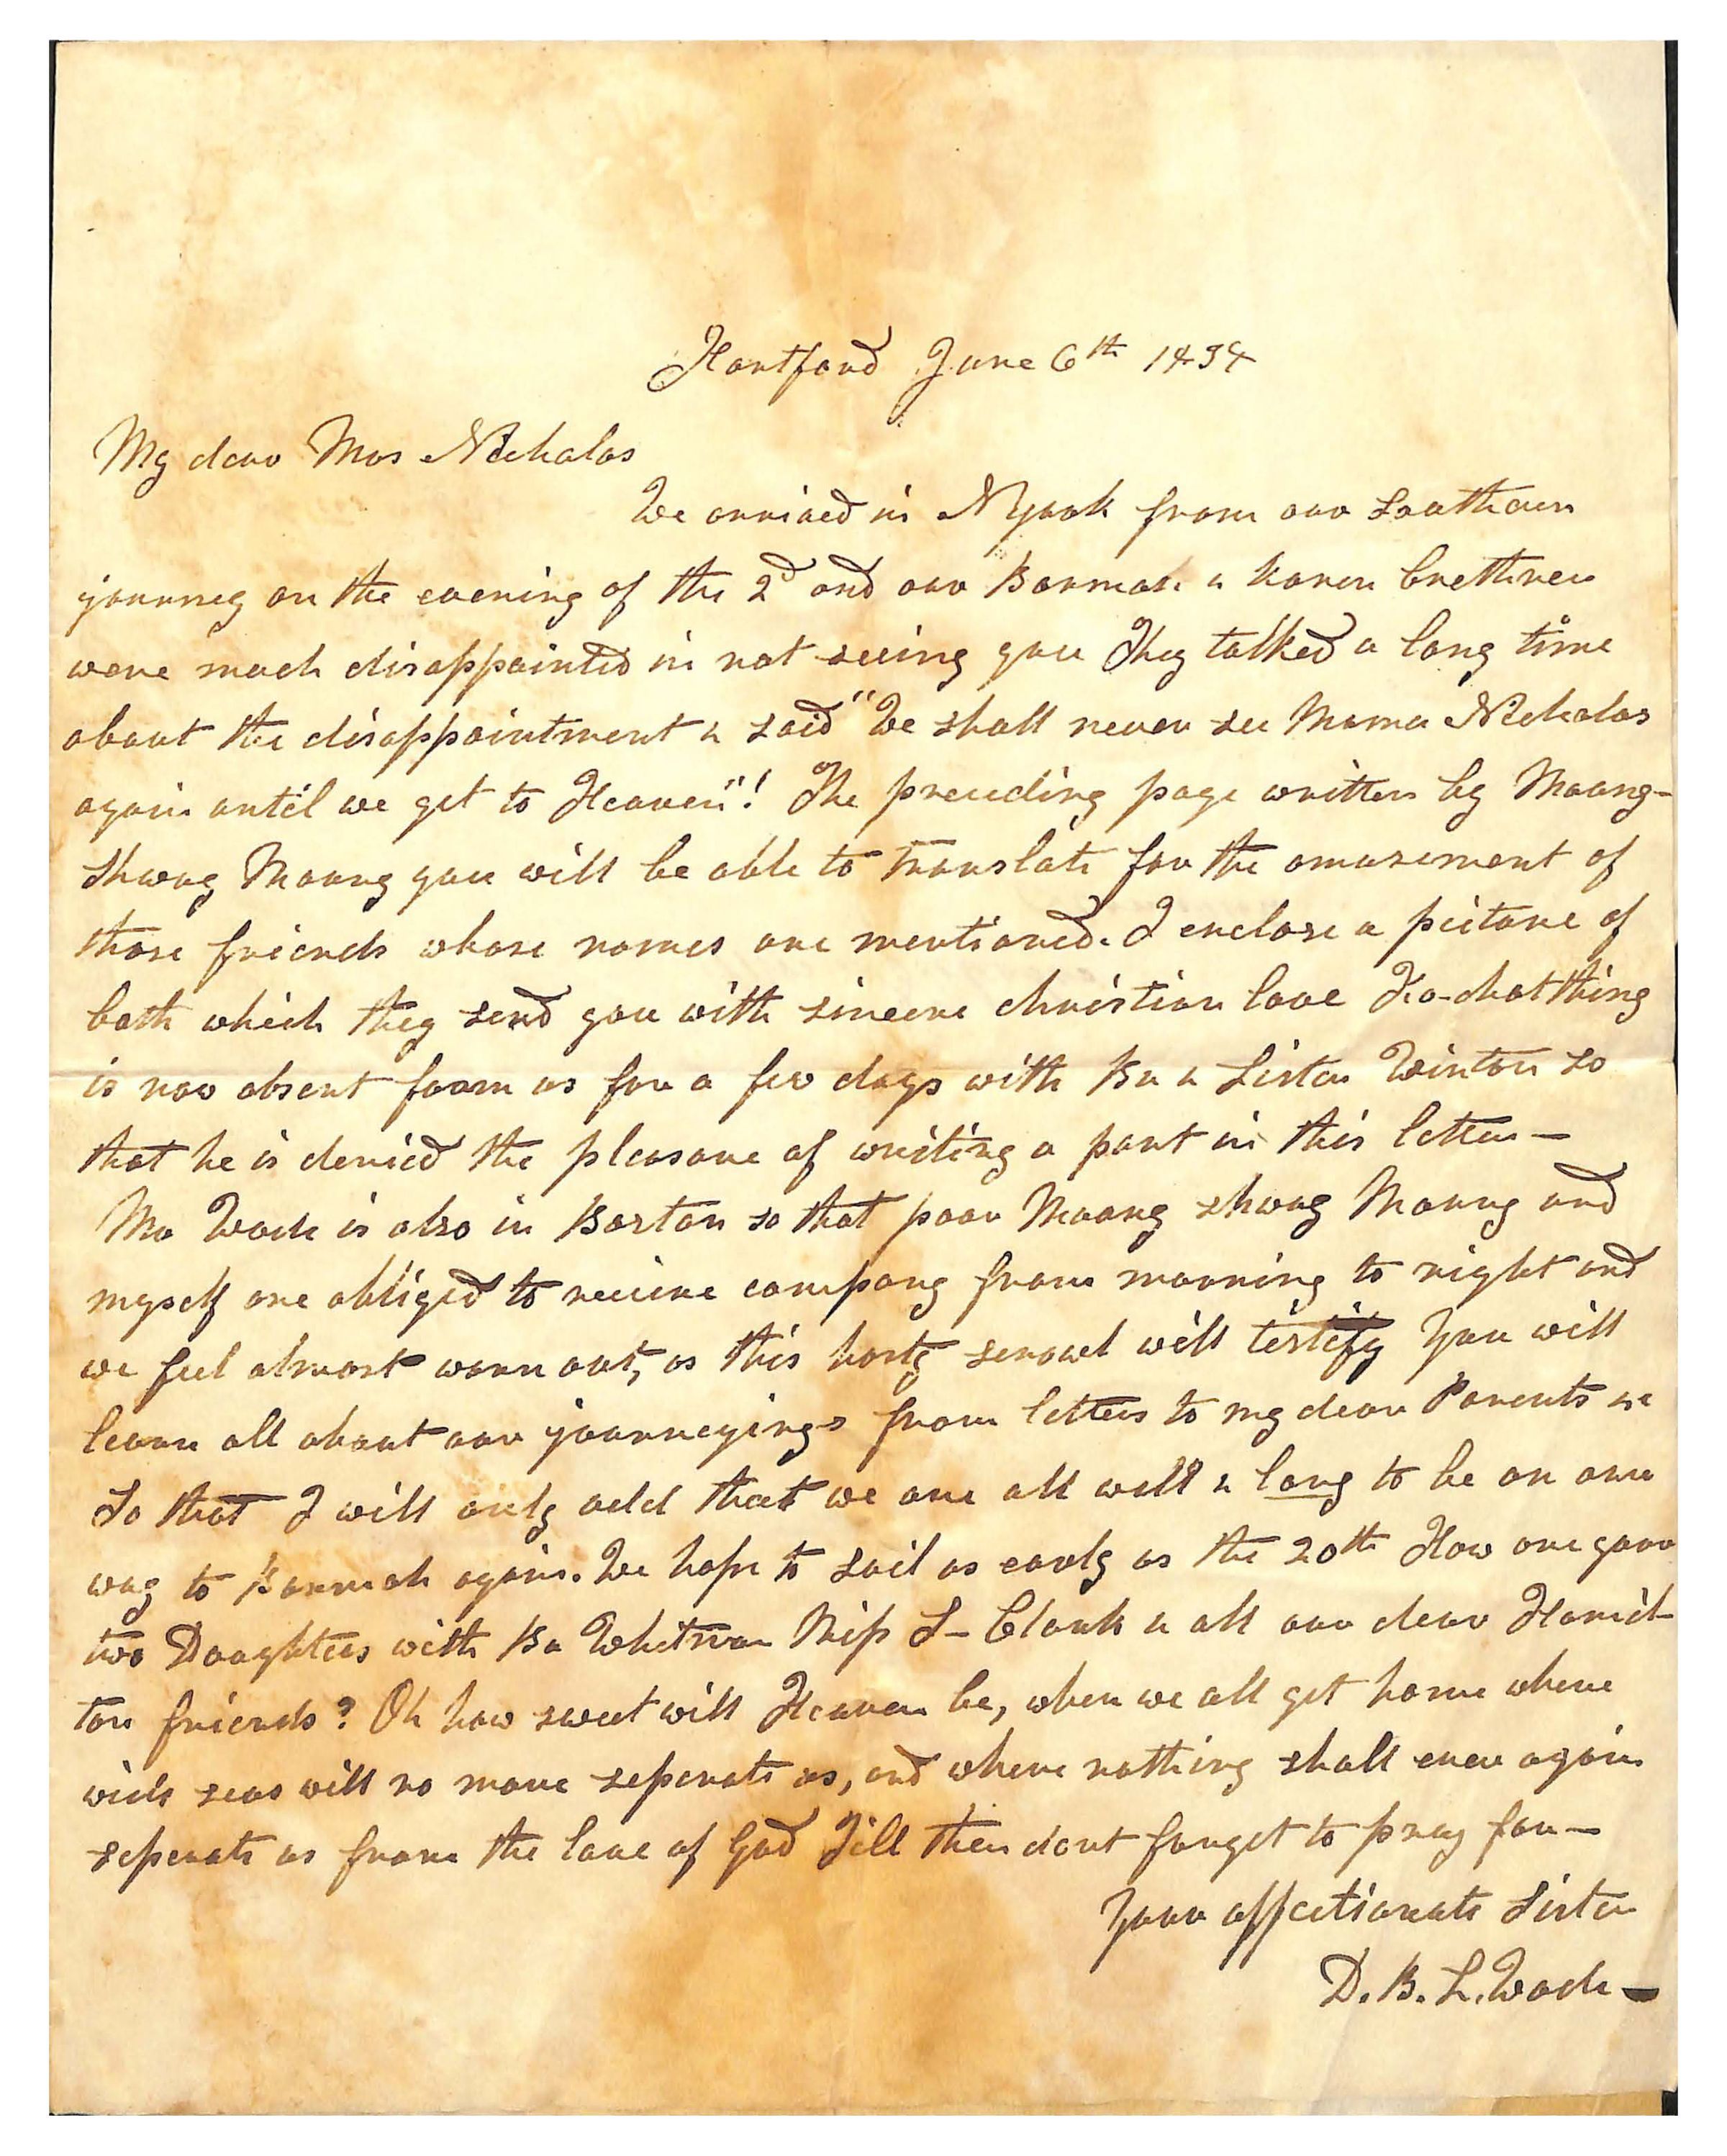 Hartford June 6th 1834
My dear Mrs Nicholas
We arrived in NYork from our Southern
journey on the evening of the 2d and our Burmah & Karen brethren
were much disappointed in not seeing you They talked a long time
about the disappointment & said "We shall never see Mama Nicholas
again until we get to Heaven"! The preceding page written by Moung-
Shway Moung you will be able to translate for the amusement of
those friends whose names are mentioned. I enclose a picture of
both which they send you with sincere christian love Ko-chat thing
is now absent from us for a few days with Br & Sister Winton so
that he is denied the pleasure of writing a part in this letter —
Mr Wade is also in Boston so that poor Moung Shway Moung and
myself are obliged to receive company from morning to night and
we feel almost worn out, as this hasty scrawl will testify You will
learn all about our journeyings from letters to my dear Parents &c
So that I will only add that we are all well & long to be on our
way to Burmah again. We hope to sail as early as the 20th How are your
two Daughters with Br Whitman Miss S- Clark & all our dear Hamil-
ton friends? Oh how sweet will Heaven be, when we all get home where
wide seas will no more seperate us, and where nothing shall ever again
seperate us from the love of God Till then dont forget to pray for —
Your affectionate Sister
D. B. L. Wade —